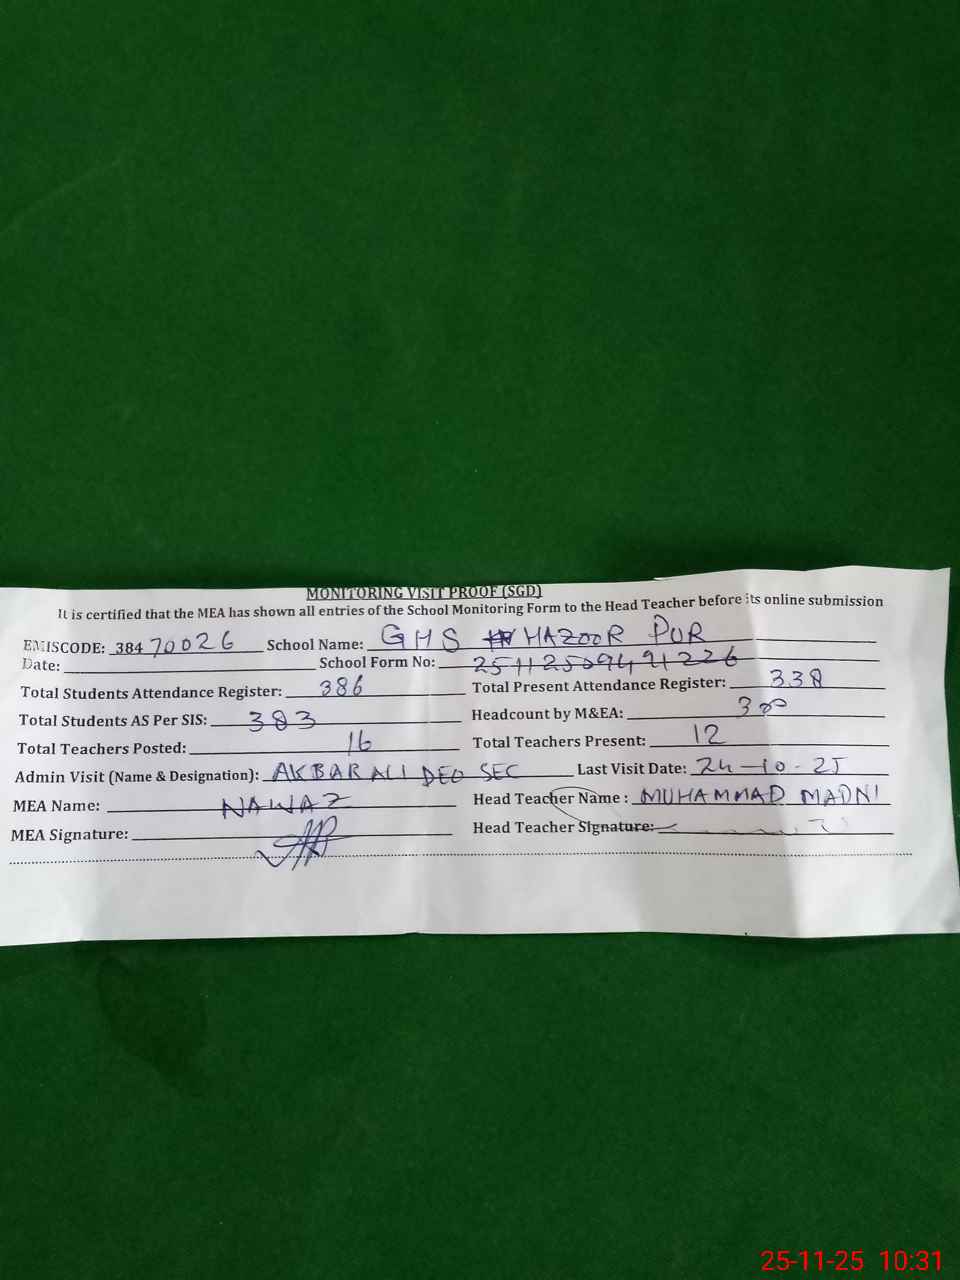 MONITORING VISIT PROOF (SGD)
It is certified that the MEA has shown all entries of the School Monitoring Form to the Head Teacher before its online submission
EMISCODE: 384 70026 School Name: GHS HAZOOR PUR
Date: School Form No: 25112509491226
Total Students Attendance Register: 386 Total Present Attendance Register: 338
Total Students AS Per SIS: 383 Headcount by M&EA: 300
Total Teachers Posted: 16 Total Teachers Present: 12
Admin Visit (Name & Designation): AKBAR ALI DEO SEC Last Visit Date: 24-10-25
MEA Name: NAWAZ Head Teacher Name : MUHAMMAD MADNI
MEA Signature: Head Teacher Signature:
25-11-25 10:31